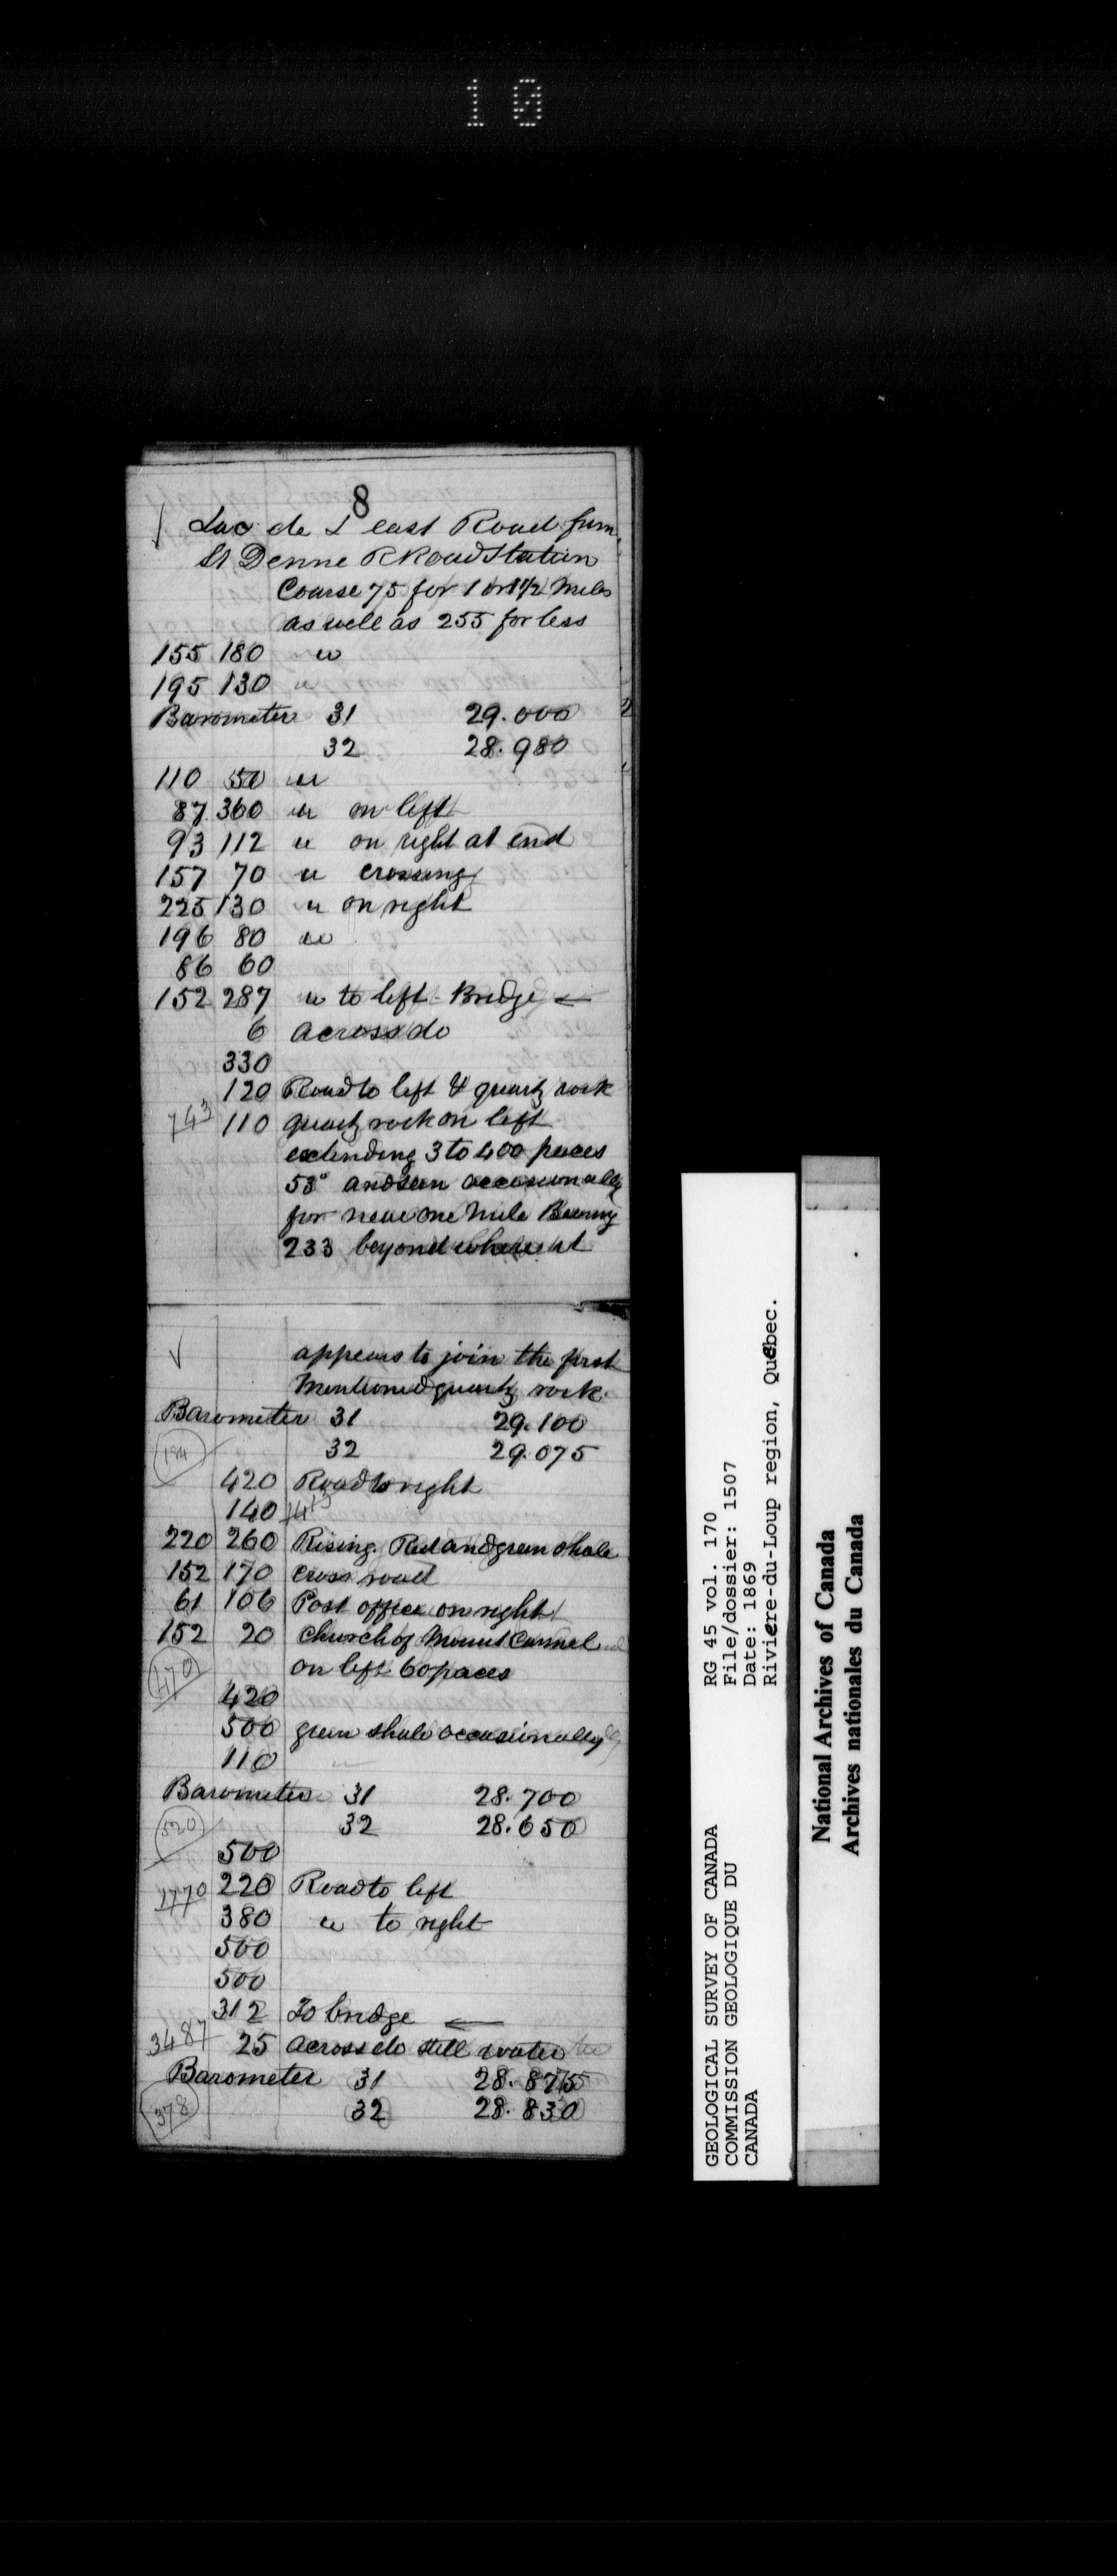 10
8
Lac de L east Road from
St Denne R Road Station
Course 75 for 1 or 1½ Miles
as well as 255 for less
155 180 "
195 130 "
Barometer 31 29.000
32 28.980
110 50 "
87 360 " on left
93 112 " on right at end
157 70 " crossing
225 130 " on right
196 80 "
86 60
152 287 " to left - Bridge ←
6 across do
330
120 Road to left & quartz rock
743 110 quartz rock on left
extending 3 to 400 paces
53° and seen occasionally
for near one Mile Bearing
233 beyond where it
✓ appears to join the first
Mentioned quartz rock.
Barometer 31 29.100
194 32 29.075
420 Road to right
140
220 260 Rising. Red and green shale
152 170 Cross road
61 106 Post office on right
152 20 Church of Mount Carmel
170 on left 60 paces
420
500 green shale occasionally
110
Barometer 31 28.700
520 32 28.650
500
1770 220 Road to left
380 " to right
500
500
312 To bridge ←
3487 25 across do still water
Barometer 31 28.875
378 32 28.830
GEOLOGICAL SURVEY OF CANADA
COMMISSION GEOLOGIQUE DU
CANADA
RG 45 vol. 170
File/dossier: 1507
Date: 1869
Rivière-du-Loup region, Québec.
National Archives of Canada
Archives nationales du Canada